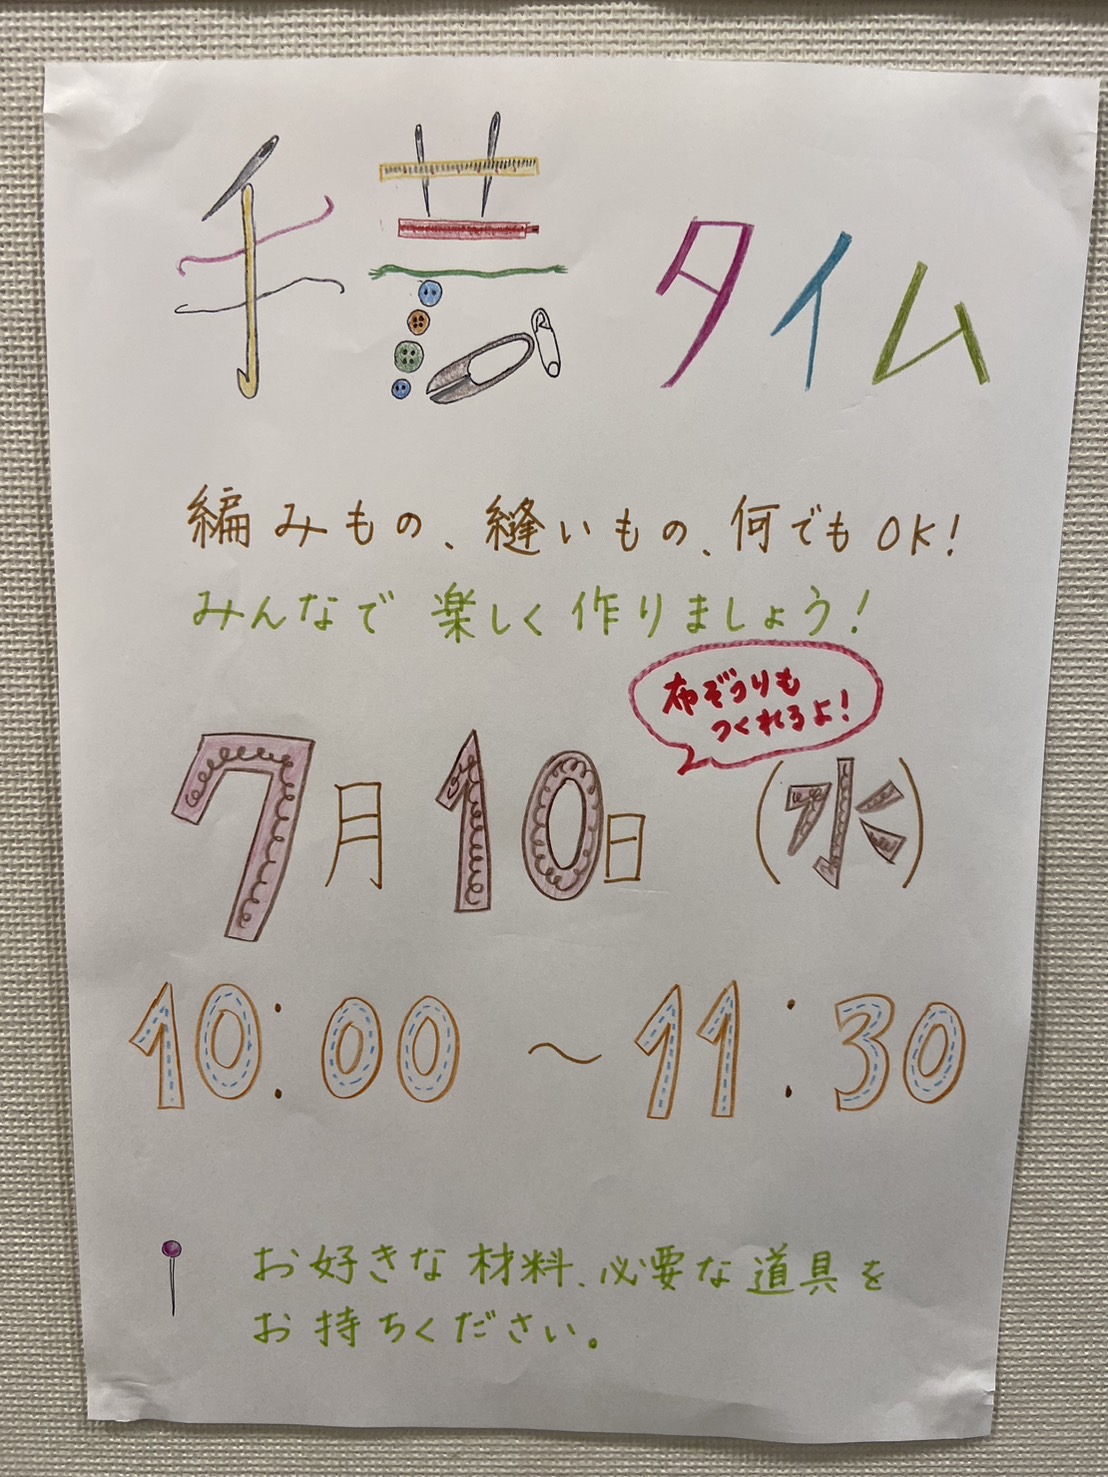 手芸タイム
編みもの、縫いもの、何でもOK!
みんなで楽しく作りましょう!
布ぞうりも
つくれるよ!
7月10日(水)
10:00～11:30
お好きな材料、必要な道具を
お持ちください。